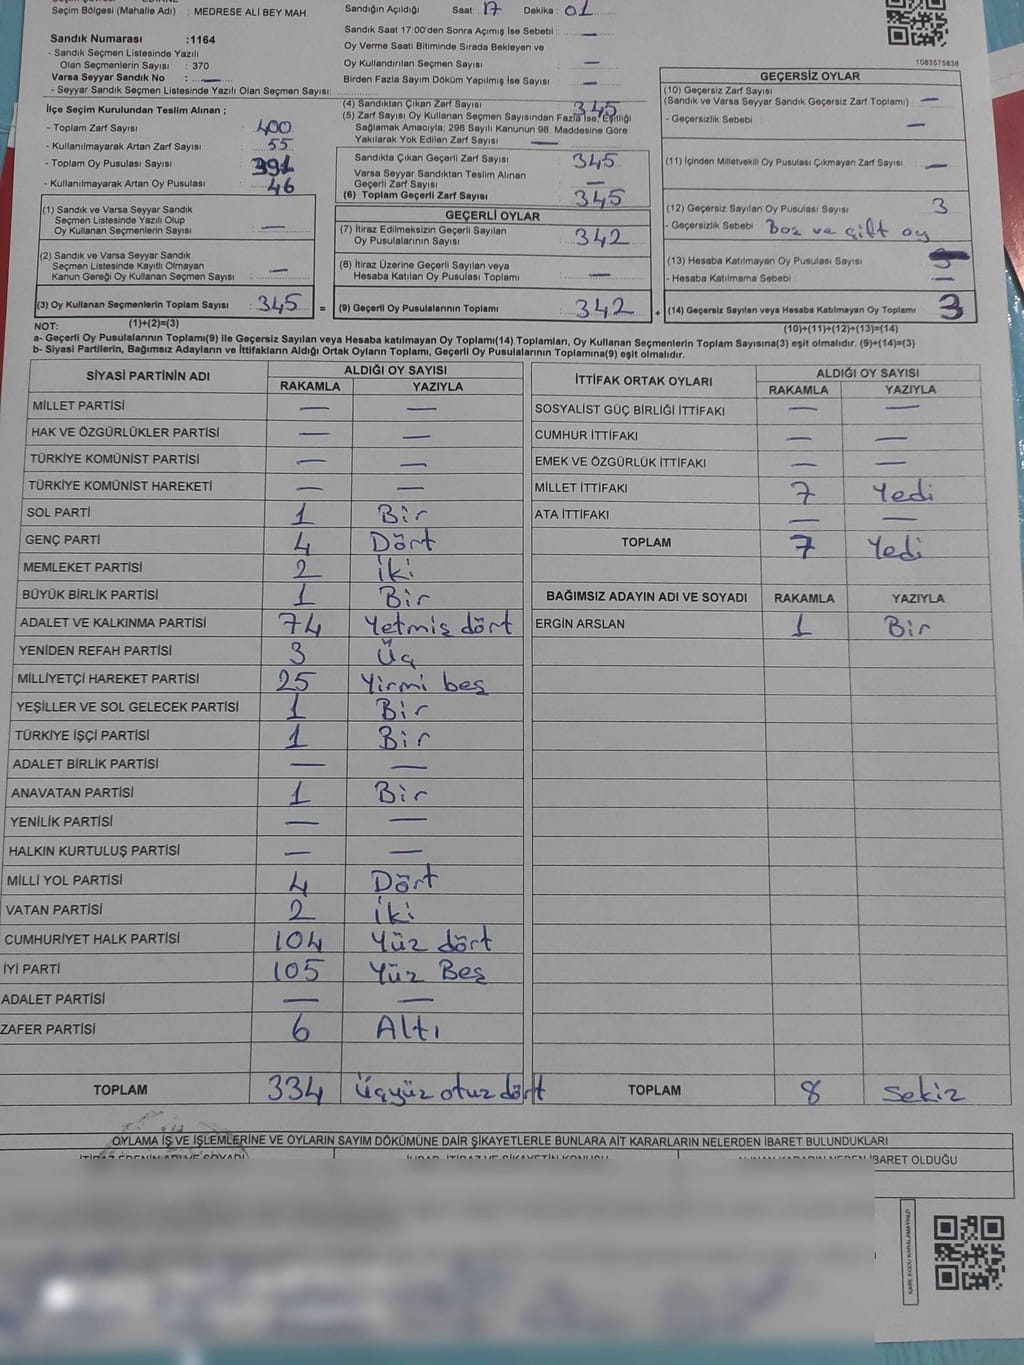 Seçim Bölgesi (Mahalle Adı) : MEDRESE ALİ BEY MAH.
Sandık Numarası :1164
- Sandık Seçmen Listesinde Yazılı
Olan Seçmenlerin Sayısı : 370
Varsa Seyyar Sandık No : —
- Seyyar Sandık Seçmen Listesinde Yazılı Olan Seçmen Sayısı:
Sandığın Açıldığı Saat: 17 Dakika : 01
Sandık Saat 17:00'den Sonra Açımış İse Sebebi : —
Oy Verme Saati Bitiminde Sırada Bekleyen ve
Oy Kullandırılan Seçmen Sayısı : —
Birden Fazla Sayım Döküm Yapılmış İse Sayısı : —
1083575838
İlçe Seçim Kurulundan Teslim Alınan ;
- Toplam Zarf Sayısı : 400
- Kullanılmayarak Artan Zarf Sayısı : 55
- Toplam Oy Pusulası Sayısı : 391
- Kullanılmayarak Artan Oy Pusulası : 46
(1) Sandık ve Varsa Seyyar Sandık
Seçmen Listesinde Yazılı Olup
Oy Kullanan Seçmenlerin Sayısı : —
(2) Sandık ve Varsa Seyyar Sandık
Seçmen Listesinde Kayıtlı Olmayan
Kanun Gereği Oy Kullanan Seçmen Sayısı : —
(3) Oy Kullanan Seçmenlerin Toplam Sayısı : 345 =
(4) Sandıktan Çıkan Zarf Sayısı : 345
(5) Zarf Sayısı Oy Kullanan Seçmen Sayısından Fazla İse, Eşitliği
Sağlamak Amacıyla; 298 Sayılı Kanunun 98. Maddesine Göre
Yakılarak Yok Edilen Zarf Sayısı : —
Sandıkta Çıkan Geçerli Zarf Sayısı : 345
Varsa Seyyar Sandıktan Teslim Alınan
Geçerli Zarf Sayısı : —
(6) Toplam Geçerli Zarf Sayısı : 345
GEÇERLİ OYLAR
(7) İtiraz Edilmeksizin Geçerli Sayılan
Oy Pusulalarının Sayısı : 342
(8) İtiraz Üzerine Geçerli Sayılan veya
Hesaba Katılan Oy Pusulası Toplamı : —
(9) Geçerli Oy Pusulalarının Toplamı : 342 +
GEÇERSİZ OYLAR
(10) Geçersiz Zarf Sayısı
(Sandık ve Varsa Seyyar Sandık Geçersiz Zarf Toplamı) : —
- Geçersizlik Sebebi : —
(11) İçinden Milletvekili Oy Pusulası Çıkmayan Zarf Sayısı : —
(12) Geçersiz Sayılan Oy Pusulası Sayısı : 3
- Geçersizlik Sebebi : Boş ve çift oy
(13) Hesaba Katılmayan Oy Pusulası Sayısı :
- Hesaba Katılmama Sebebi : —
(14) Geçersiz Sayılan veya Hesaba Katılmayan Oy Toplamı : 3
NOT: (1)+(2)=(3) (10)+(11)+(12)+(13)=(14)
a- Geçerli Oy Pusulalarının Toplamı(9) ile Geçersiz Sayılan veya Hesaba katılmayan Oy Toplamı(14) Toplamları, Oy Kullanan Seçmenlerin Toplam Sayısına(3) eşit olmalıdır. (9)+(14)=(3)
b- Siyasi Partilerin, Bağımsız Adayların ve İttifakların Aldığı Ortak Oyların Toplamı, Geçerli Oy Pusulalarının Toplamına(9) eşit olmalıdır.
SİYASİ PARTİNİN ADI ALDIĞI OY SAYISI
RAKAMLA YAZIYLA
MİLLET PARTİSİ — —
HAK VE ÖZGÜRLÜKLER PARTİSİ — —
TÜRKİYE KOMÜNİST PARTİSİ — —
TÜRKİYE KOMÜNİST HAREKETİ — —
SOL PARTİ 1 Bir
GENÇ PARTİ 4 Dört
MEMLEKET PARTİSİ 2 İki
BÜYÜK BİRLİK PARTİSİ 1 Bir
ADALET VE KALKINMA PARTİSİ 74 Yetmiş dört
YENİDEN REFAH PARTİSİ 3 Üç
MİLLİYETÇİ HAREKET PARTİSİ 25 Yirmi beş
YEŞİLLER VE SOL GELECEK PARTİSİ 1 Bir
TÜRKİYE İŞÇİ PARTİSİ 1 Bir
ADALET BİRLİK PARTİSİ — —
ANAVATAN PARTİSİ 1 Bir
YENİLİK PARTİSİ — —
HALKIN KURTULUŞ PARTİSİ — —
MİLLİ YOL PARTİSİ 4 Dört
VATAN PARTİSİ 2 İki
CUMHURİYET HALK PARTİSİ 104 Yüz dört
İYİ PARTİ 105 Yüz Beş
ADALET PARTİSİ — —
ZAFER PARTİSİ 6 Altı
TOPLAM 334 Üçyüz otuz dört
İTTİFAK ORTAK OYLARI ALDIĞI OY SAYISI
RAKAMLA YAZIYLA
SOSYALİST GÜÇ BİRLİĞİ İTTİFAKI — —
CUMHUR İTTİFAKI — —
EMEK VE ÖZGÜRLÜK İTTİFAKI — —
MİLLET İTTİFAKI 7 Yedi
ATA İTTİFAKI — —
TOPLAM 7 Yedi
BAĞIMSIZ ADAYIN ADI VE SOYADI RAKAMLA YAZIYLA
ERGİN ARSLAN 1 Bir
TOPLAM 8 Sekiz
OYLAMA İŞ VE İŞLEMLERİNE VE OYLARIN SAYIM DÖKÜMÜNE DAİR ŞİKAYETLERLE BUNLARA AİT KARARLARIN NELERDEN İBARET BULUNDUKLARI
İTİRAZ EDENİN ADI VE SOYADI
İBARET OLDUĞU
KARE KODU KARALAMAYINIZ!